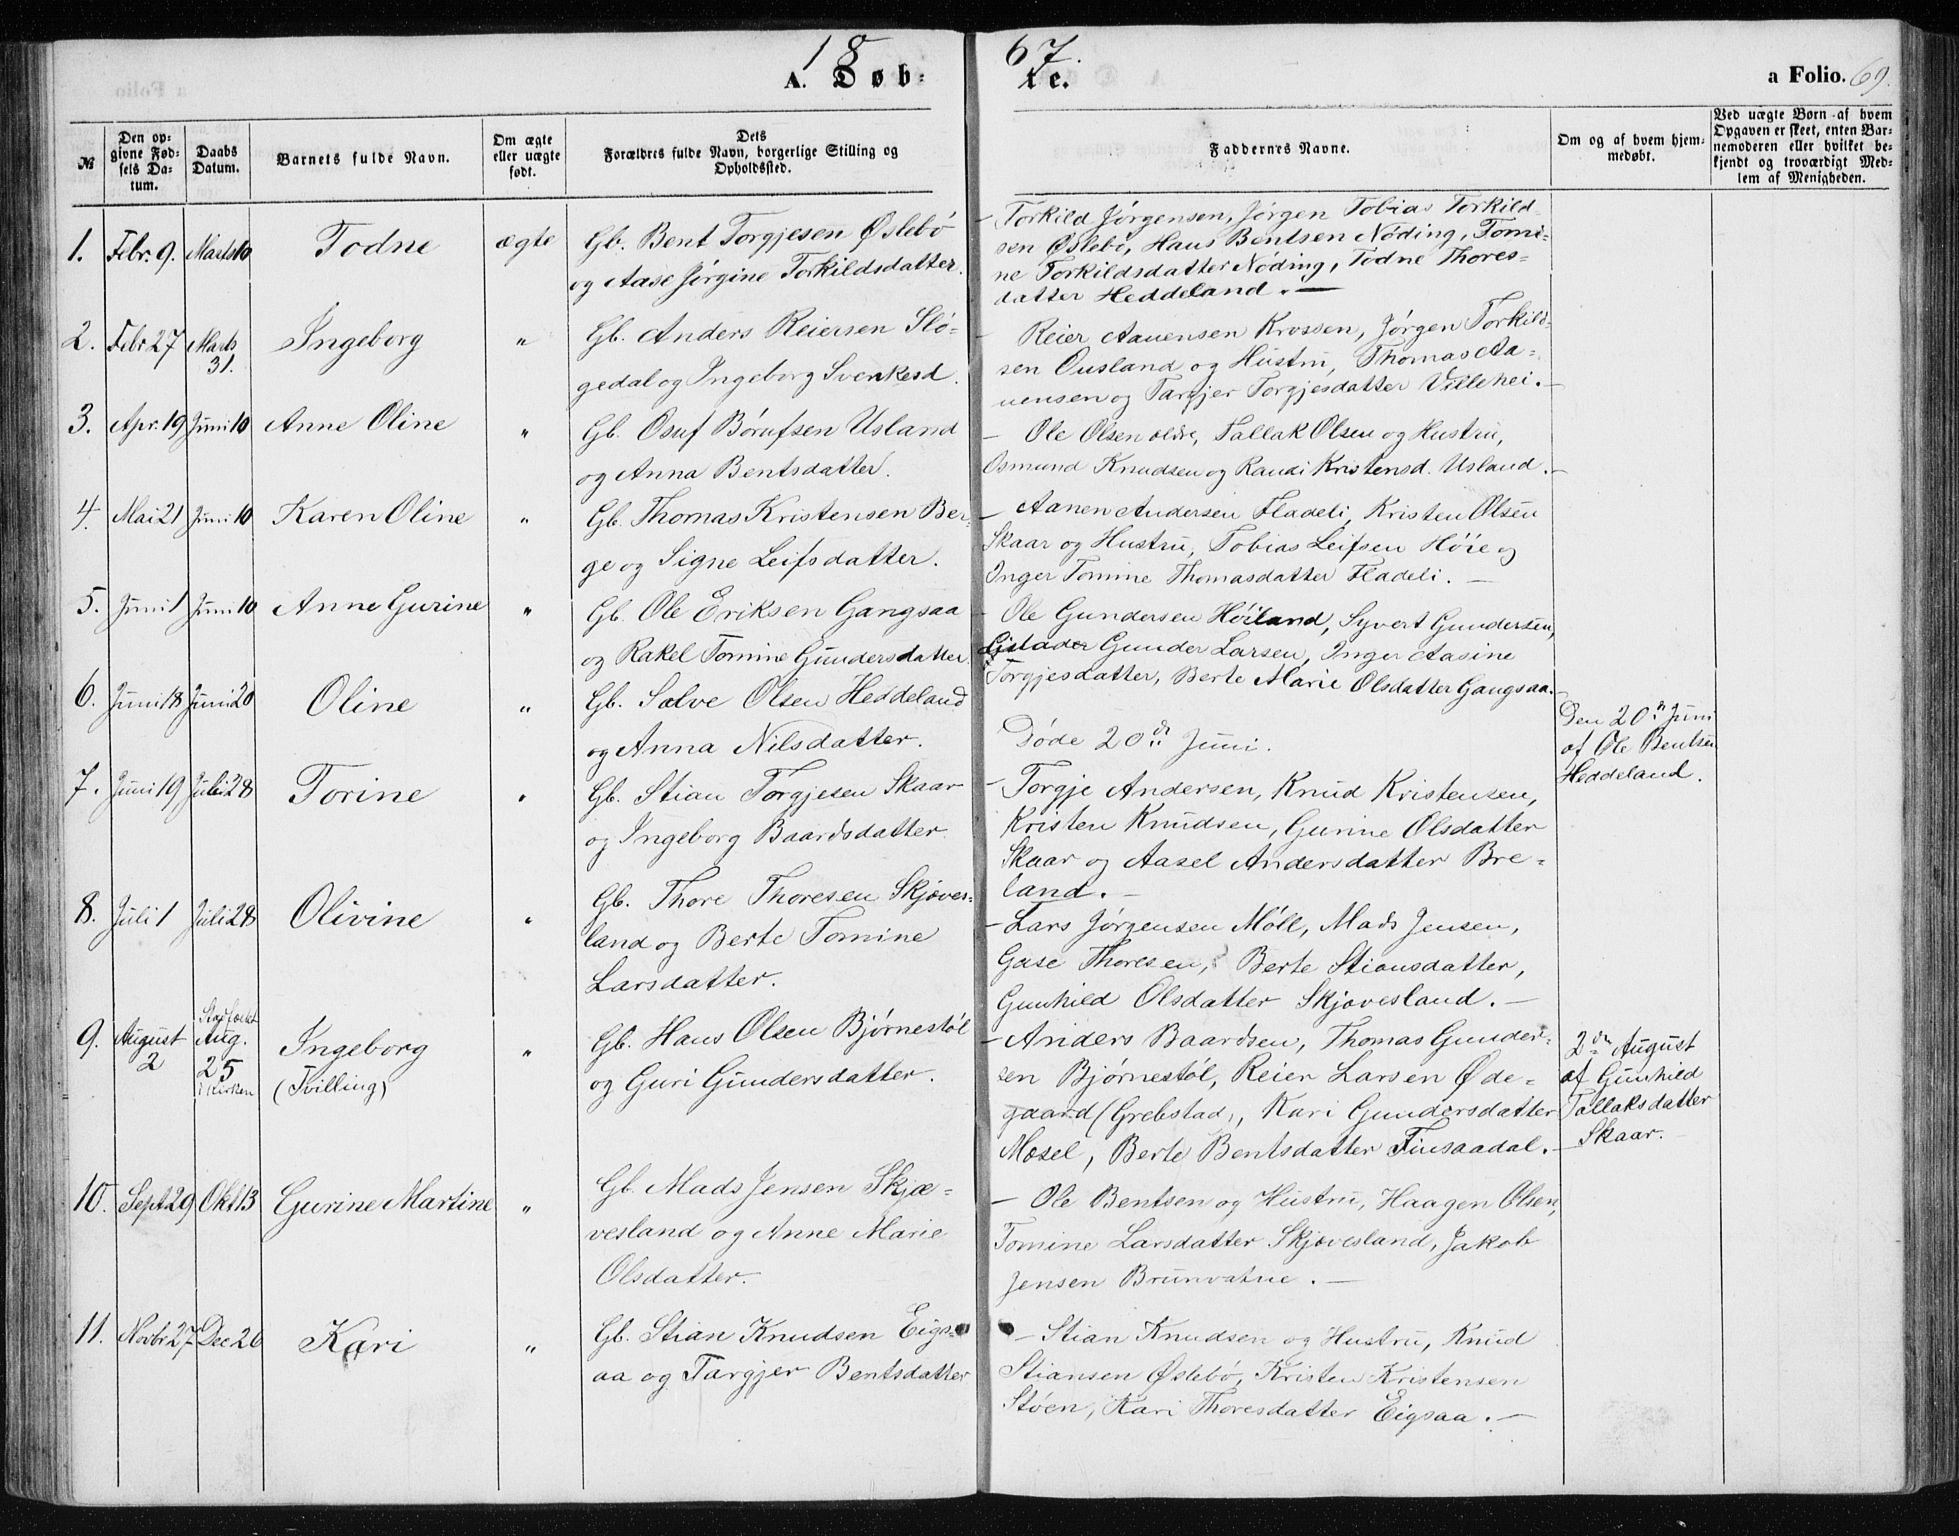 1867.
A. Døb: te.
a Folio. 69.
№
Den op-
givne Fød-
sels Da-
tum.
Daabs
Datum.
Barnets fulde Navn.
Om ægte
eller uægte
født.
Dets
Forældres fulde Navn, borgerlige Stilling og
Opholdssted.
Faddernes Navne.
Om og af hvem hjem-
medøbt.
Ved uægte Børn af hvem
Opgaven er skeet, enten Bar-
nemoderen eller hvilket be-
kjendt og troværdigt Med-
lem af Menigheden.
1. Febr. 9. Marts 10 Todne ægte
Gb. Bent Torgjesen Øslebø
og Aase Jørgine Torkildsdatter.
- Torkild Jørgensen, Jørgen Tobias Torkild-
sen Øslebø, Hans Bentsen Nøding, Tomi-
ne Torkildsdatter Nøding, Todne Thores-
datter Heddeland. -
2. Febr 27 Marts
31. Ingeborg "
Gb. Anders Reiersen Slø-
gedal og Ingeborg Svenkesd.
- Reier Aanensen Krossen, Jørgen Torkild-
sen Ousland og Hustru, Thomas Aa-
nensen og Targjer Torgjesdatter Vellehei. -
3. Apr. 19 Juni 10 Anne Oline "
Gb. Osuf Børufsen Usland
og Anna Bentsdatter.
- Ole Olsen ældre, Tallak Olsen og Hustru,
Osmund Knudsen og Randi Kristensd. Usland. -
4. Mai 21 Juni 10 Karen Oline "
Gb. Thomas Kristensen Ber-
ge og Signe Leifsdatter.
- Aanen Andersen Fladeli, Kristen Olsen
Skaar og Hustru, Tobias Leifsen Høie og
Inger Tomine Thomasdatter Fladeli. -
5. Juni 1 Juni 10 Anne Gurine "
Gb. Ole Eriksen Gangsaa
og Rakel Tomine Gundersdatter.
- Ole Gundersen Høiland, Syvert Gundersen,
Gunder Larsen, Inger Aasine
Torgjesdatter, Berte Marie Olsdatter Gangsaa.
6. Juni 18 Juni 20 Oline "
Gb. Salve Olsen Heddeland
og Anna Nilsdatter.
Døde 20de Juni.
Den 20de Juni
af Ole Bentsen
Heddeland.
7. Juni 19 Juli 28 Torine "
Gb. Stian Torgjesen Skaar
og Ingeborg Baardsdatter.
- Torgje Andersen, Knud Kristensen,
Kristen Knudsen, Gurine Olsdatter
Skaar og Aasel Andersdatter Bre-
land. -
8. Juli 1 Juli 28 Olivine "
Gb. Thore Thoresen Skjæves-
land og Berte Tomine
Larsdatter.
- Lars Jørgensen Møll, Mads Jensen,
Gase Thoresen, Berte Stiansdatter,
Gunhild Olsdatter Skjævesland. -
9. August
2
Stadfæstet
Aug.
25
i Kirken
Ingeborg
(Tvilling)
"
Gb. Hans Olsen Bjørnestøl
og Guri Gundersdatter.
- Anders Baardsen, Thomas Gunder-
sen Bjørnestøl, Reier Larsen Øde-
gaard (Grebstad), Kari Gundersdatter
Mosel, Berte Bentsdatter Finsaadal. -
2den August
af Gunhild
Tallaksdatter
Skaar.
10. Sept 29 Okt 13 Gurine Martine "
Gb. Mads Jensen Skjæ-
vesland og Anne Marie
Olsdatter.
- Ole Bentsen og Hustru, Haagen Olsen,
Tomine Larsdatter Skjævesland, Jakob
Jensen Brunvatne. -
11. Novbr 27 Dec 26 Kari "
Gb. Stian Knudsen Eigs-
aa og Targjer Bentsdatter
- Stian Knudsen og Hustru, Knud
Stiansen Øslebø, Kristen Kristensen
Støen, Kari Thoresdatter Eigsaa. -